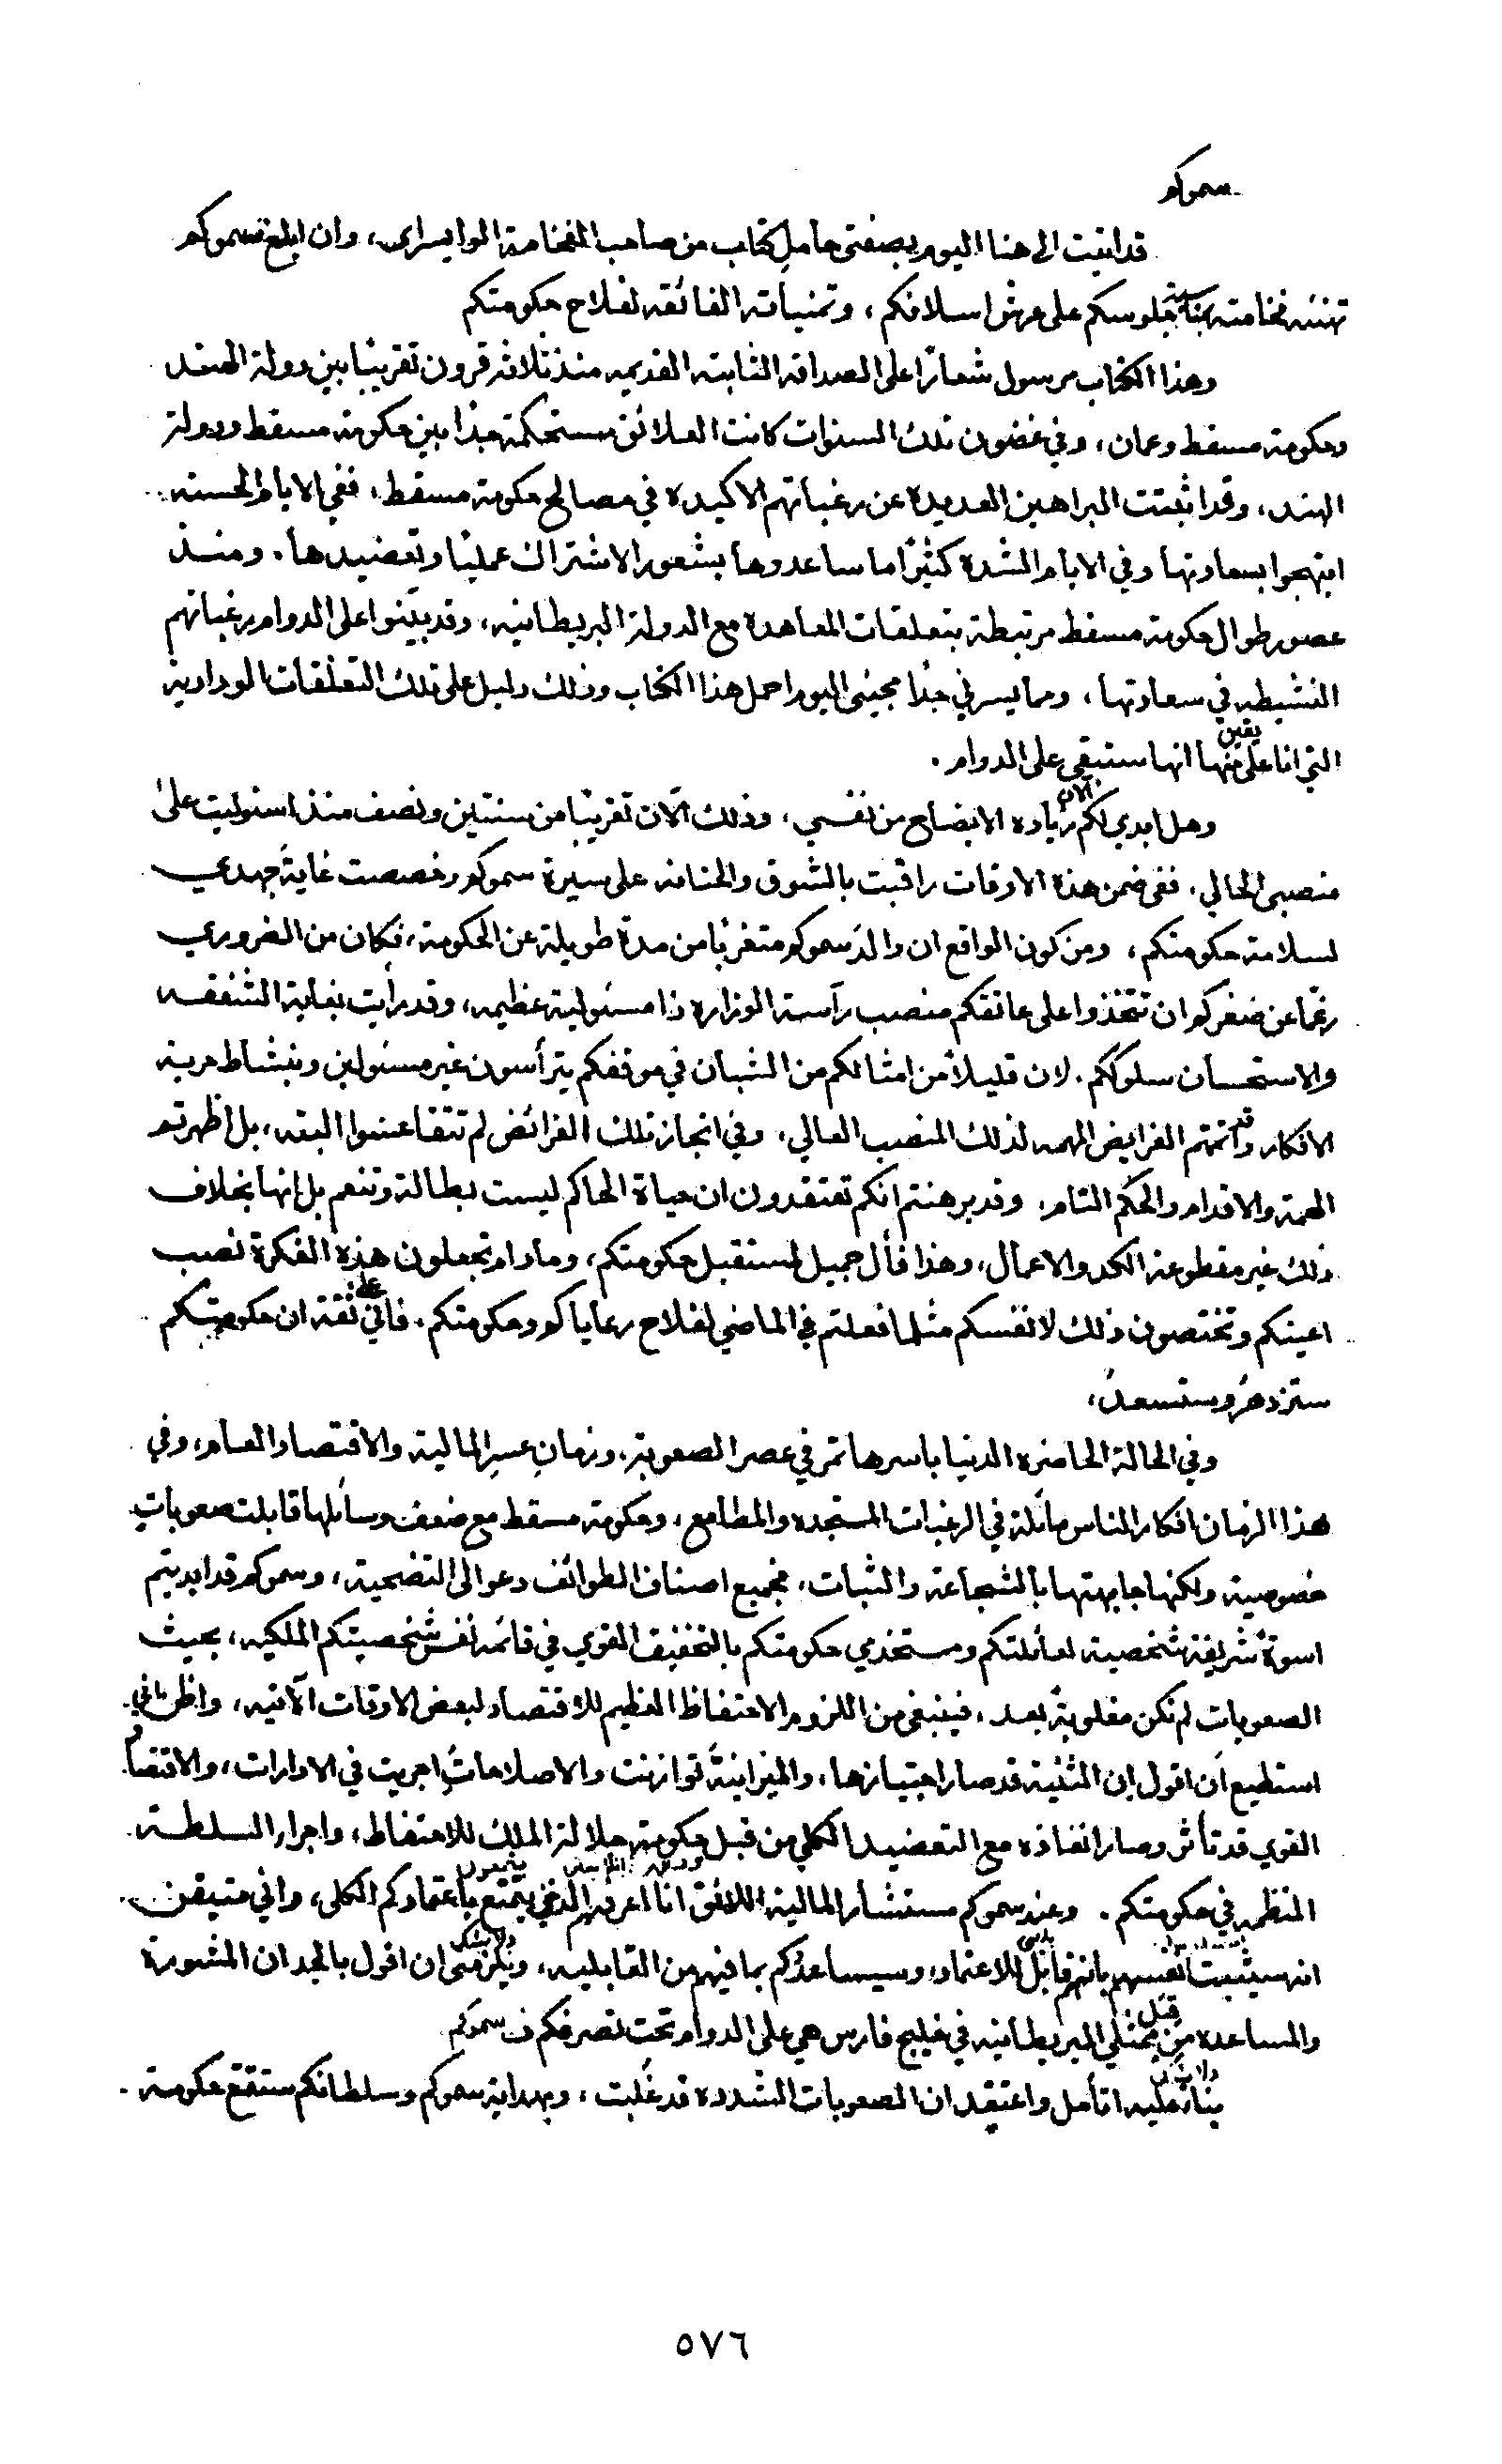 سموكم
قد اتيت الى هنا اليوم بصفتى حامل كتاب من صاحب الفخامة الوايسراى، وان ابلغ سموكم
تهنئه فخامته بمناسبة جلوسكم على عرش اسلافكم، وتمنياته الفائقه لفلاح حكومتكم
وهذا الكتاب مرسول شعارًا على الصداقه الثابته القديمه منذ ثلاثه قرون تقريبًا بين دولة الهند
وحكومة مسقط وعمان، وفي غضون تلك السنوات كانت العلائق مستحكمة جدًا بين حكومة مسقط ودولة
الهند، وقد اثبتت البراهين العديدة عن رغباتهم الاكيده في مصالح حكومة مسقط، ففي الايام الحسنه
ابتهجوا بسعادتها وفي الايام الشده كثيرًا ما ساعدوها بشعور الاشتراك عمليًا وتعضيدها. ومنذ
عصور طوال حكومة مسقط مرتبطة بتعلقات المعاهدة مع الدولة البريطانيه، وقد بيّنوا على الدوام رغباتهم
النشيطه في سعادتها، ومما يسرني جدًا مجيئى اليوم احمل هذا الكتاب وذلك دليل على تلك التعلقات الودادية
التي انا على يقين منها انها ستبقى على الدوام.
وهل ابدي لكم الآن زياده الايضاح من نفسي، وذلك الآن تقريبًا من سنتين ونصف منذ استوليت على
منصبى الحالي، ففى ضمن هذة الاوقات راقبت بالشوق والحنانه على سيرة سموكم وخصصت غاية جهدي
لسلامة حكومتكم، ومن كون الواقع ان والد سموكم متغربًا من مدة طويلة عن الحكومة، فكان من الضروري
رغمًا عن صغركم ان تتخذوا على عاتقكم منصب رآسة الوزاره ذا مسئولية عظيمه، وقد رأيت بغاية الشفقه
والاستحسان سلوككم. لان قليلاً من امثالكم من الشبان في موقفكم يترأسون غير مسئولين وبنشاط حرية
الافكار، وقد اتممتم الفرايض المهمه لذلك المنصب العالي، وفي انجاز تلك الفرائض لم تتقاعسوا البته، بل اظهرتم
الهمة والاقدام والحكم التام، وقد برهنتم انكم تعتقدون ان حياة الحاكم ليست بطالة وتنعم بل إنها بخلاف
ذلك غير مقطوعة الكد والاعمال، وهذا فأل جميل لمستقبل حكومتكم، وما دام تجعلون هذه الفكرة نصب
اعينكم وتختصون ذلك لانفسكم مثلما فعلتم في الماضي لفلاح رعاياكم وحكومتكم. فأني على ثقة ان حكومتكم
ستزدهر وستسعد،
وفي الحالة الحاضره الدنيا باسرها تمر في عصر الصعوبة، وزمان عسر المالية والاقتصاد العام، وفي
هذا الزمان افكار الناس مائلة في الرغبات المستجده والمطامع، وحكومة مسقط مع ضعف وسائلها قابلت صعوبات
خصوصية ولكنها جابهتها بالشجاعة والثبات، فجميع اصناف الطوائف دعوا الى التضحية، وسموكم قد ابديتم
اسوة شريفة شخصية لعائلتكم ومستخدمي حكومتكم بالتخفيف القوي في قائمة نفس شخصيتكم الملكيه، بحيث
الصعوبات لم تكن مغلوبة بعد، فينبغي من اللزوم الاحتفاظ العظيم للاقتصاد لبعض الاوقات الآتيه، واظن باني
استطيع ان اقول ان الثنية قد صار اجتيازها، والميزانية توازنت والاصلاحات اجريت في الادارات، والاقتصاد
القوي قد تأثر وصار انفاذه مع التعضيد الكلي من قبل حكومة جلالة الملك للاحتفاظ، واجرار السلطة
المنظمه في حكومتكم. وعند سموكم مستشار المالية اللائق انا اعرفهم الذي يتمتعون باعتمادكم الكلى، واني متيقن
انه سيثبت نفسهم بانهم قابل للاعتماد، وسيساعدكم بما فيهم من القابليه، ويمكننى ان اقول بالجد ان المشورة
والمساعده من قبل ممثلي البريطانيه في خليج فارس هي على الدوام تحت تصرفكم سموكم
بناءً عليه اتأمل واعتقد ان الصعوبات الشدده قد غُلبت، وبهداية سموكم وسلطانكم ستقع حكومة
٥٧٦